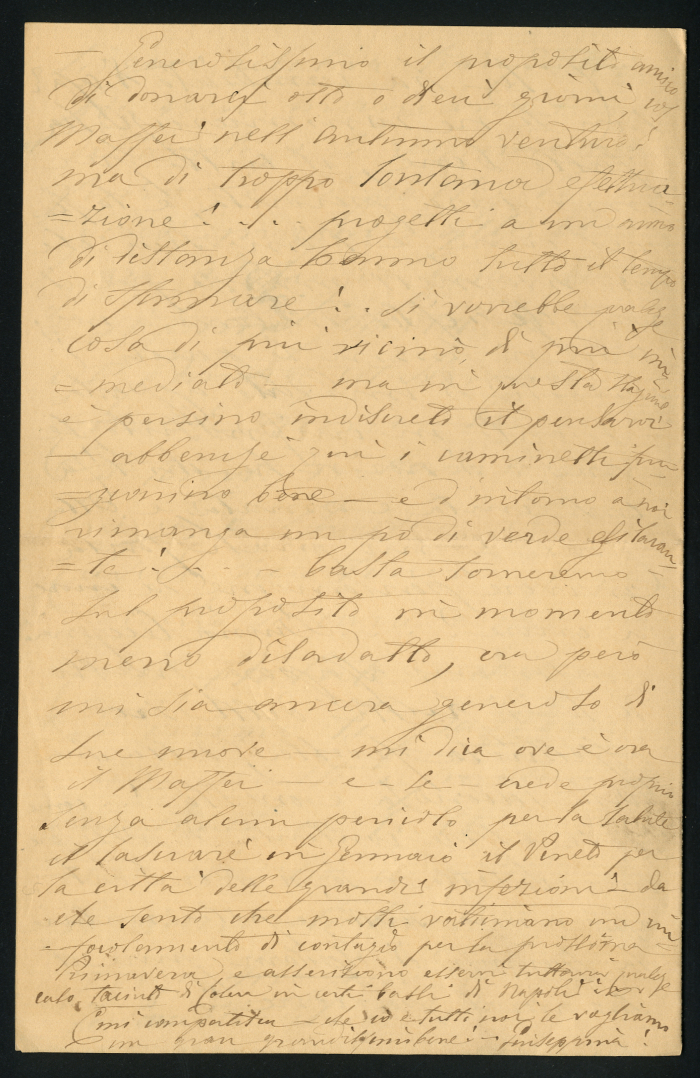 — Generosissimo il proposito amico
di donarci otto o dieci giorni, col
Maffei nell'autunno venturo!
ma di troppo lontana effettua-
=zione! . . . progetti a un anno
di distanza hanno tutto il tempo
di sfumare! . . Si vorrebbe qualche
cosa di più vicino, di più im-
=mediato — ma in questa stagione
è persino indiscreto il pensarvi
— abbenché qui i caminetti fun-
=zionino bene — ed intorno a noi
rimanga un pò di verde esilaran-
=te! . . . basta torneremo
sul proposito in momento
meno disadatto, ora però
mi sia ancora generoso di
sue nuove — mi dica ove è ora
il Maffei — e se crede proprio
senza alcun pericolo per la salute
il lasciare in Gennaio il Veneto per
la città delle grandi infezioni — da
che sento che molti vaticinano un rin-
focolamento di contagio per la prossima
Primavera, e asseriscono esservi tuttavia qualche
caso, taciuto di Colera in certi bassi di Napoli
E mi compatisca — che io e tutti noi le vogliamo
un gran grandissimo bene! — Giuseppina!